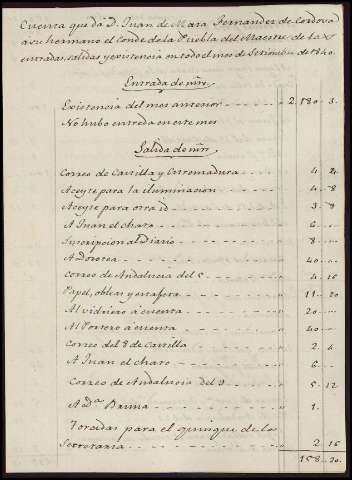 Cuenta que dá D. Juan de Mata Fernandez de Cordova
á su hermano el Conde de la Puebla del Maestre de las
entradas, salidas y existencia en todo el mes de Setiembre de 1840.
Entrada de mrs
Existencia del mes anterior 2.180 3.
No hubo entrada en este mes
Salida de mrs
Correo de Castilla y Estremadura 4 24
Aceyte para la iluminacion 4 8
Aceyte para otra id 3 8
A Juan el charo 6
Suscripcion al Diario 8
A Dorotea 40
Correo de Andalucia del 5 4 16
Papel, obleas y estafeta 11 20
Al vidriero a cuenta 20
Al Portero a cuenta 40
Correo del 8 de Castilla 2 4
A Juan el charo 6
Correo de Andalucia del 5 12
A Da Bruna 1
Torcidas para el quinque de la
Secretaria 2 16
158 20